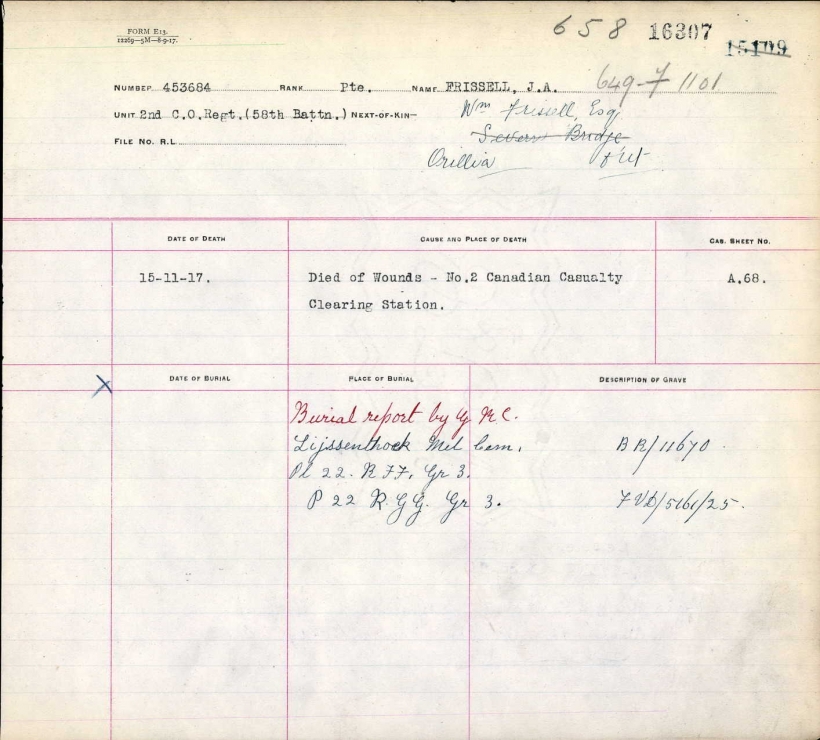 FORM E13.
12269—5M—8-9-17.
658 16307
15109
NUMBER 453684 RANK Pte. NAME FRISSELL, J.A. 649-F 1101
UNIT 2nd C.O.Regt.(58th Battn.) NEXT-OF-KIN— Wm Frissell, Esq
Severn Bridge
FILE No. R.L.
Orillia Ont
DATE OF DEATH CAUSE AND PLACE OF DEATH CAS. SHEET No.
15-11-17. Died of Wounds - No.2 Canadian Casualty A.68.
Clearing Station.
X DATE OF BURIAL PLACE OF BURIAL DESCRIPTION OF GRAVE
Burial report by G R C.
Lijssenthoek Mil Cem, BR/11670
Pl 22. R FF, Gr 3.
P 22 R.GG. Gr 3. FVD/5161/25.